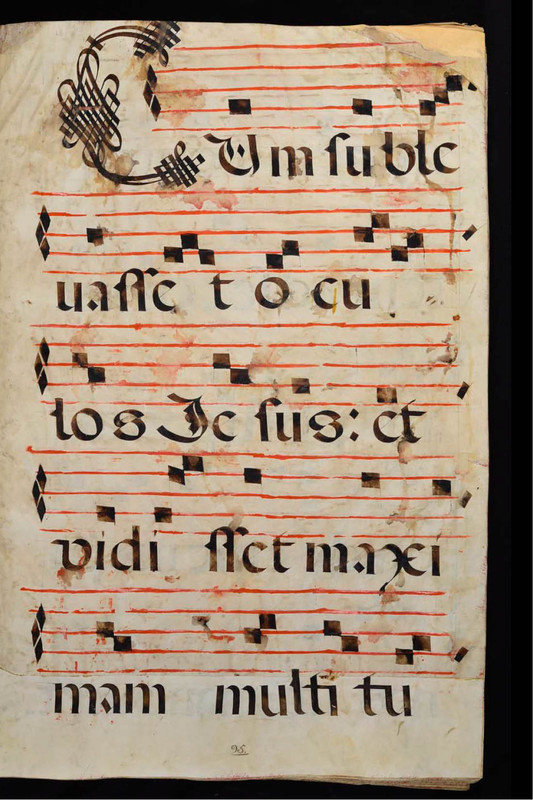 CUm suble
uasset ocu
los Jesus: et
vidisset maxi
mam multitu
95.